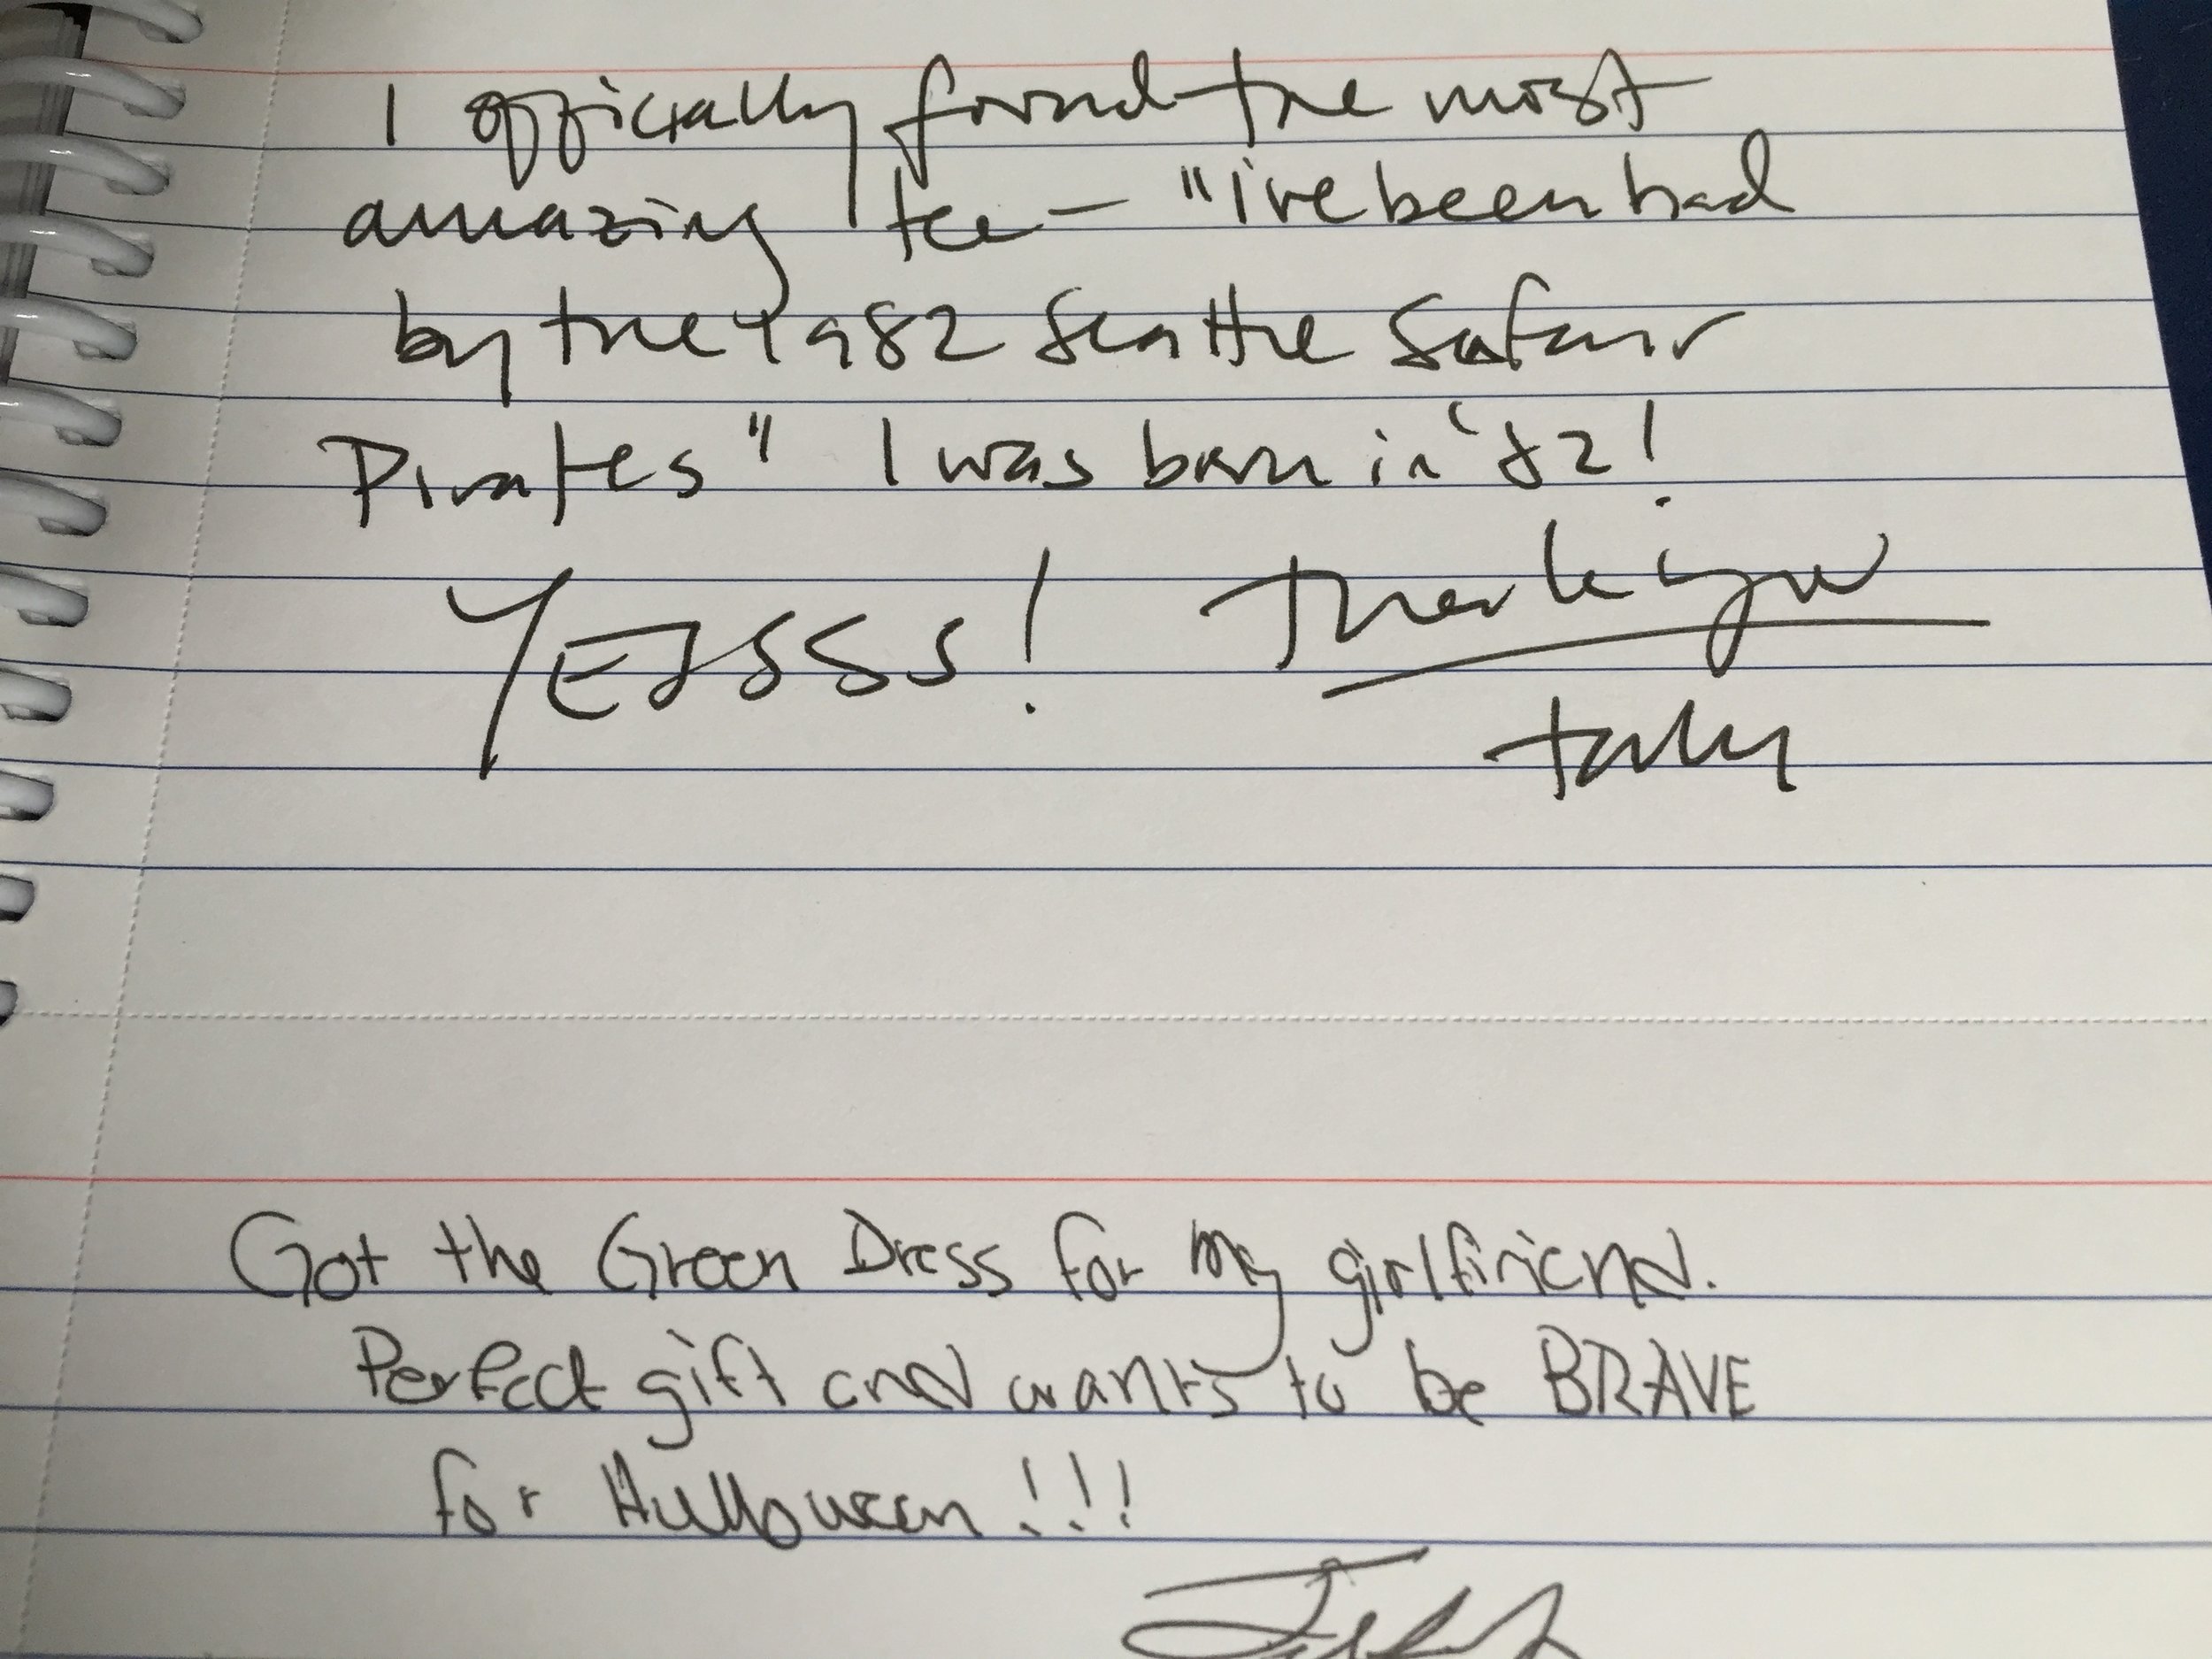 I officially found the most
amazing tee — "i've been had
by the 1982 Seattle Seafair
Pirates" I was born in '82!
YEJSSS! thank you
Got the Green Dress for my girlfriend.
Perfect gift and wants to be BRAVE
for Halloween!!!